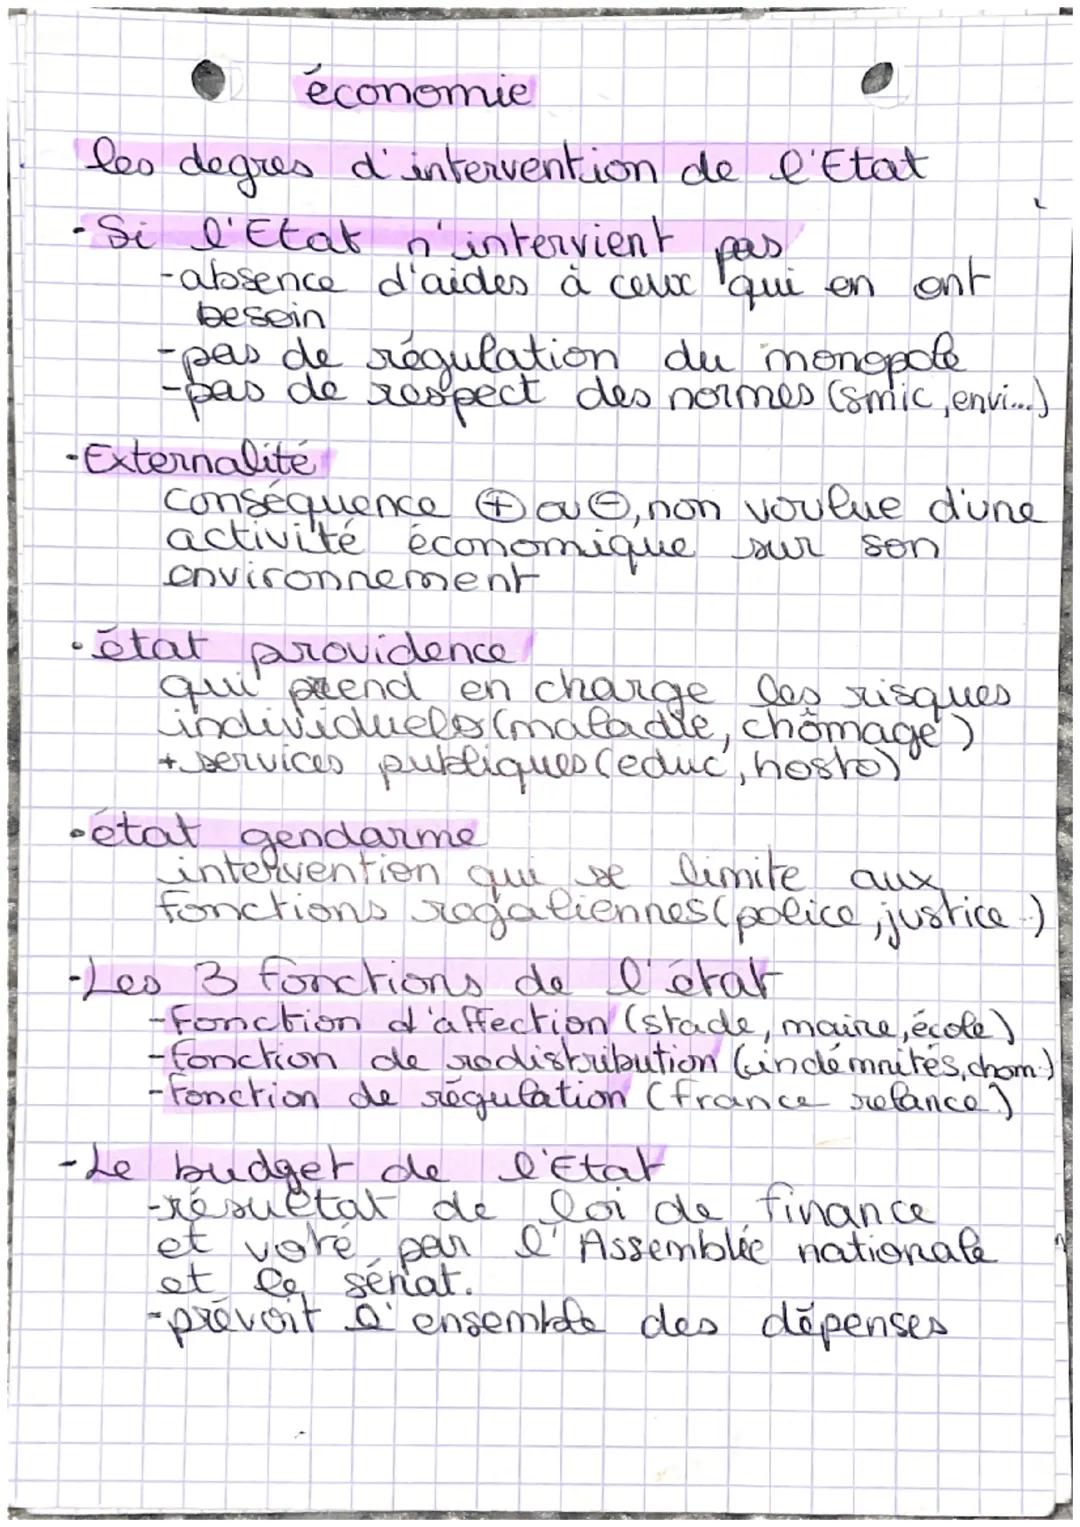 économie
les degres d'intervention de l'Etat
- Si l'Etat n'intervient pas
- absence d'aides à ceux qui en ont
besoin
- pas de régulation du monopole
- pas de respect des normes (smic, envi...)
- Externalité
conséquence ⊕ ou ⊖, non voulue d'une
activité économique sur son
environnement
• état providence
qui prend en charge les risques
individuels (maladie, chômage)
+ services publiques (educ, hosto)
• état gendarme
intervention qui se limite aux
fonctions régaliennes (police, justice..)
- Les 3 fonctions de l'état
- fonction d'affection (stade, maire, école)
- fonction de redistribution (indémnités, chom.)
- fonction de régulation (france relance)
- Le budget de l'Etat
- résultat de loi de finance
et voté par l'Assemblée nationale
et le sénat.
- prévoit l'ensemble des dépenses